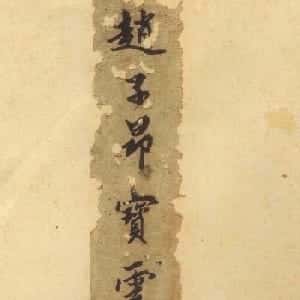 趙子昂寶雲